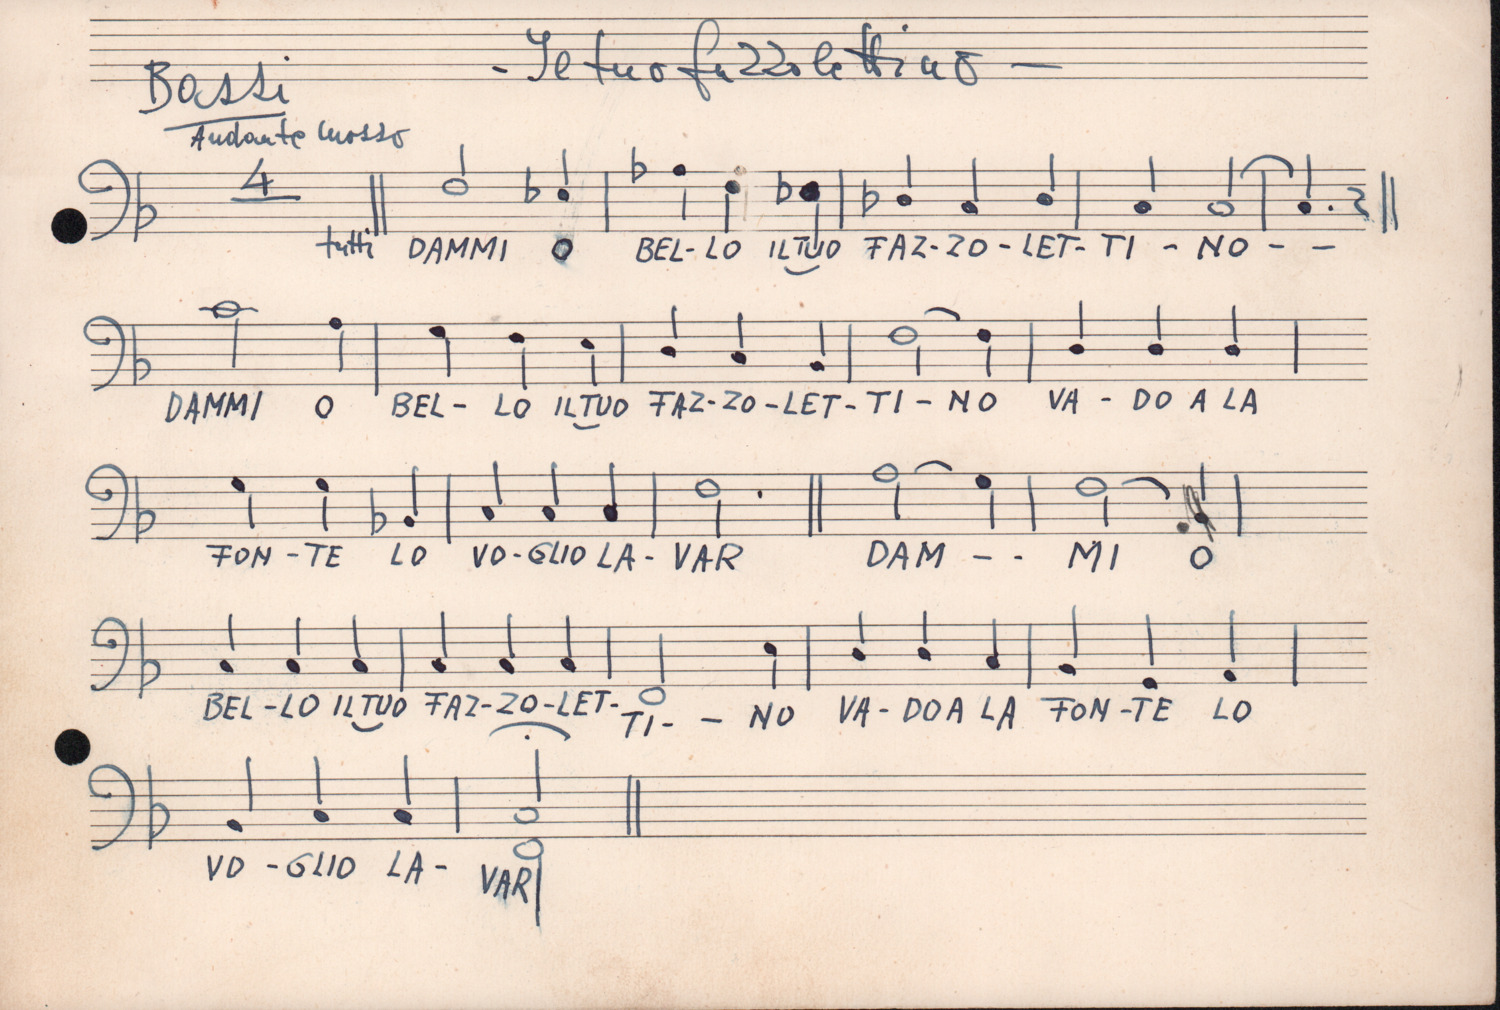 - Il tuo fazzolettino -
Bassi
Andante mosso
4
tutti DAMMI O BEL-LO IL TUO FAZ-ZO-LET-TI-NO - -
DAMMI O BEL- LO IL TUO FAZ-ZO-LET-TI-NO VA-DO A LA
FON-TE LO VO-GLIO LA-VAR DAM - - MI O
BEL-LO IL TUO FAZ-ZO-LET-TI- - NO VA-DO A LA FON-TE LO
VO-GLIO LA- VAR